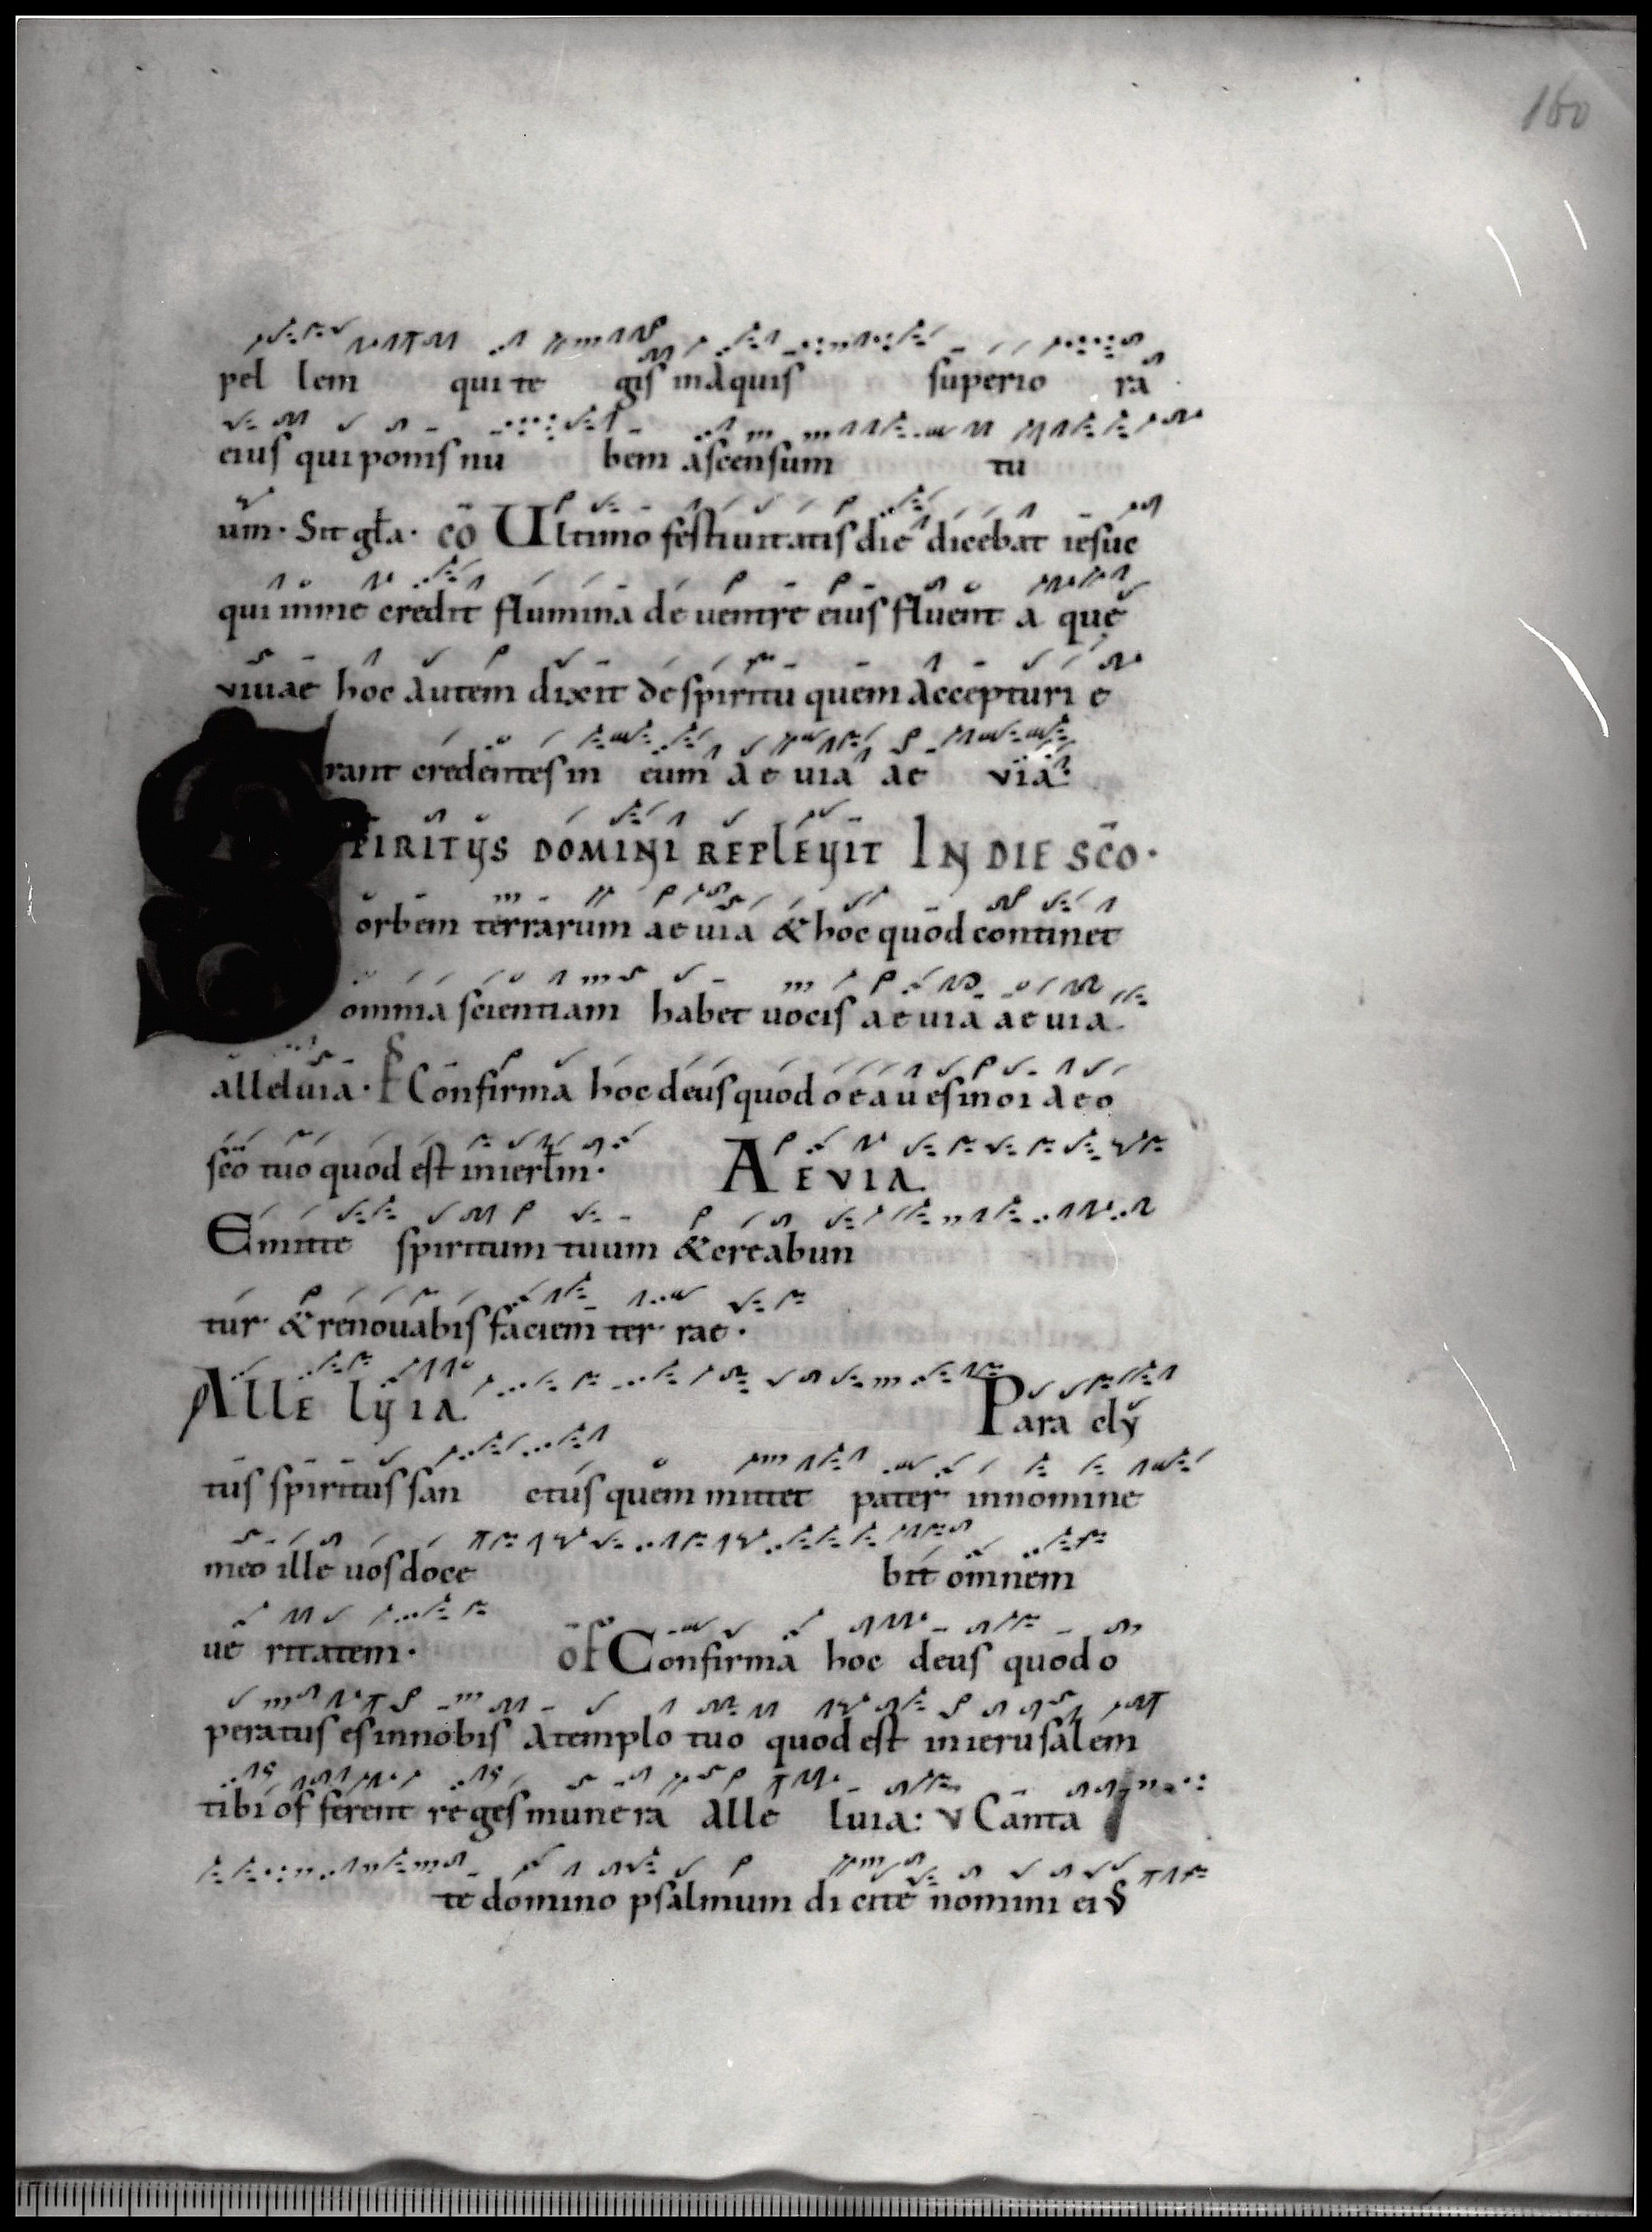 160
pel lem qui te gis in aquis superio ra
eius qui ponis nu bem ascensum tu
um · Sit gła · cō Ultimo festiuitatis die dicebat iesus
qui in me credit flumina de uentre eius fluent a que
vivae hoc autem dixit de spiritu quem accepturi e
rant credentes in eum a e uia ae via·
SPIRITUS DOMINI REPLEUIT IN DIE SCŌ·
orbem terrarum aeuia & hoc quod continet
omnia scientiam habet uocis aeuia aeuia.
alleluia · Confirma hoc deus quod o e a u es in o i a e o
scō tuo quod est in ierłm·
AEVIA.
Emitte spiritum tuum & creabun
tur & renouabis faciem ter rae·
ALLE LUIA Para cly
tus spiritus san ctus quem mittet pater in nomine
meo ille uos doce bit omnem
ue ritatem· of Confirma hoc deus quod o
peratus es in nobis a templo tuo quod est in ierusalem
tibi of ferent reges munera alle luia: v Canta
te domino psalmum di cite nomini ei